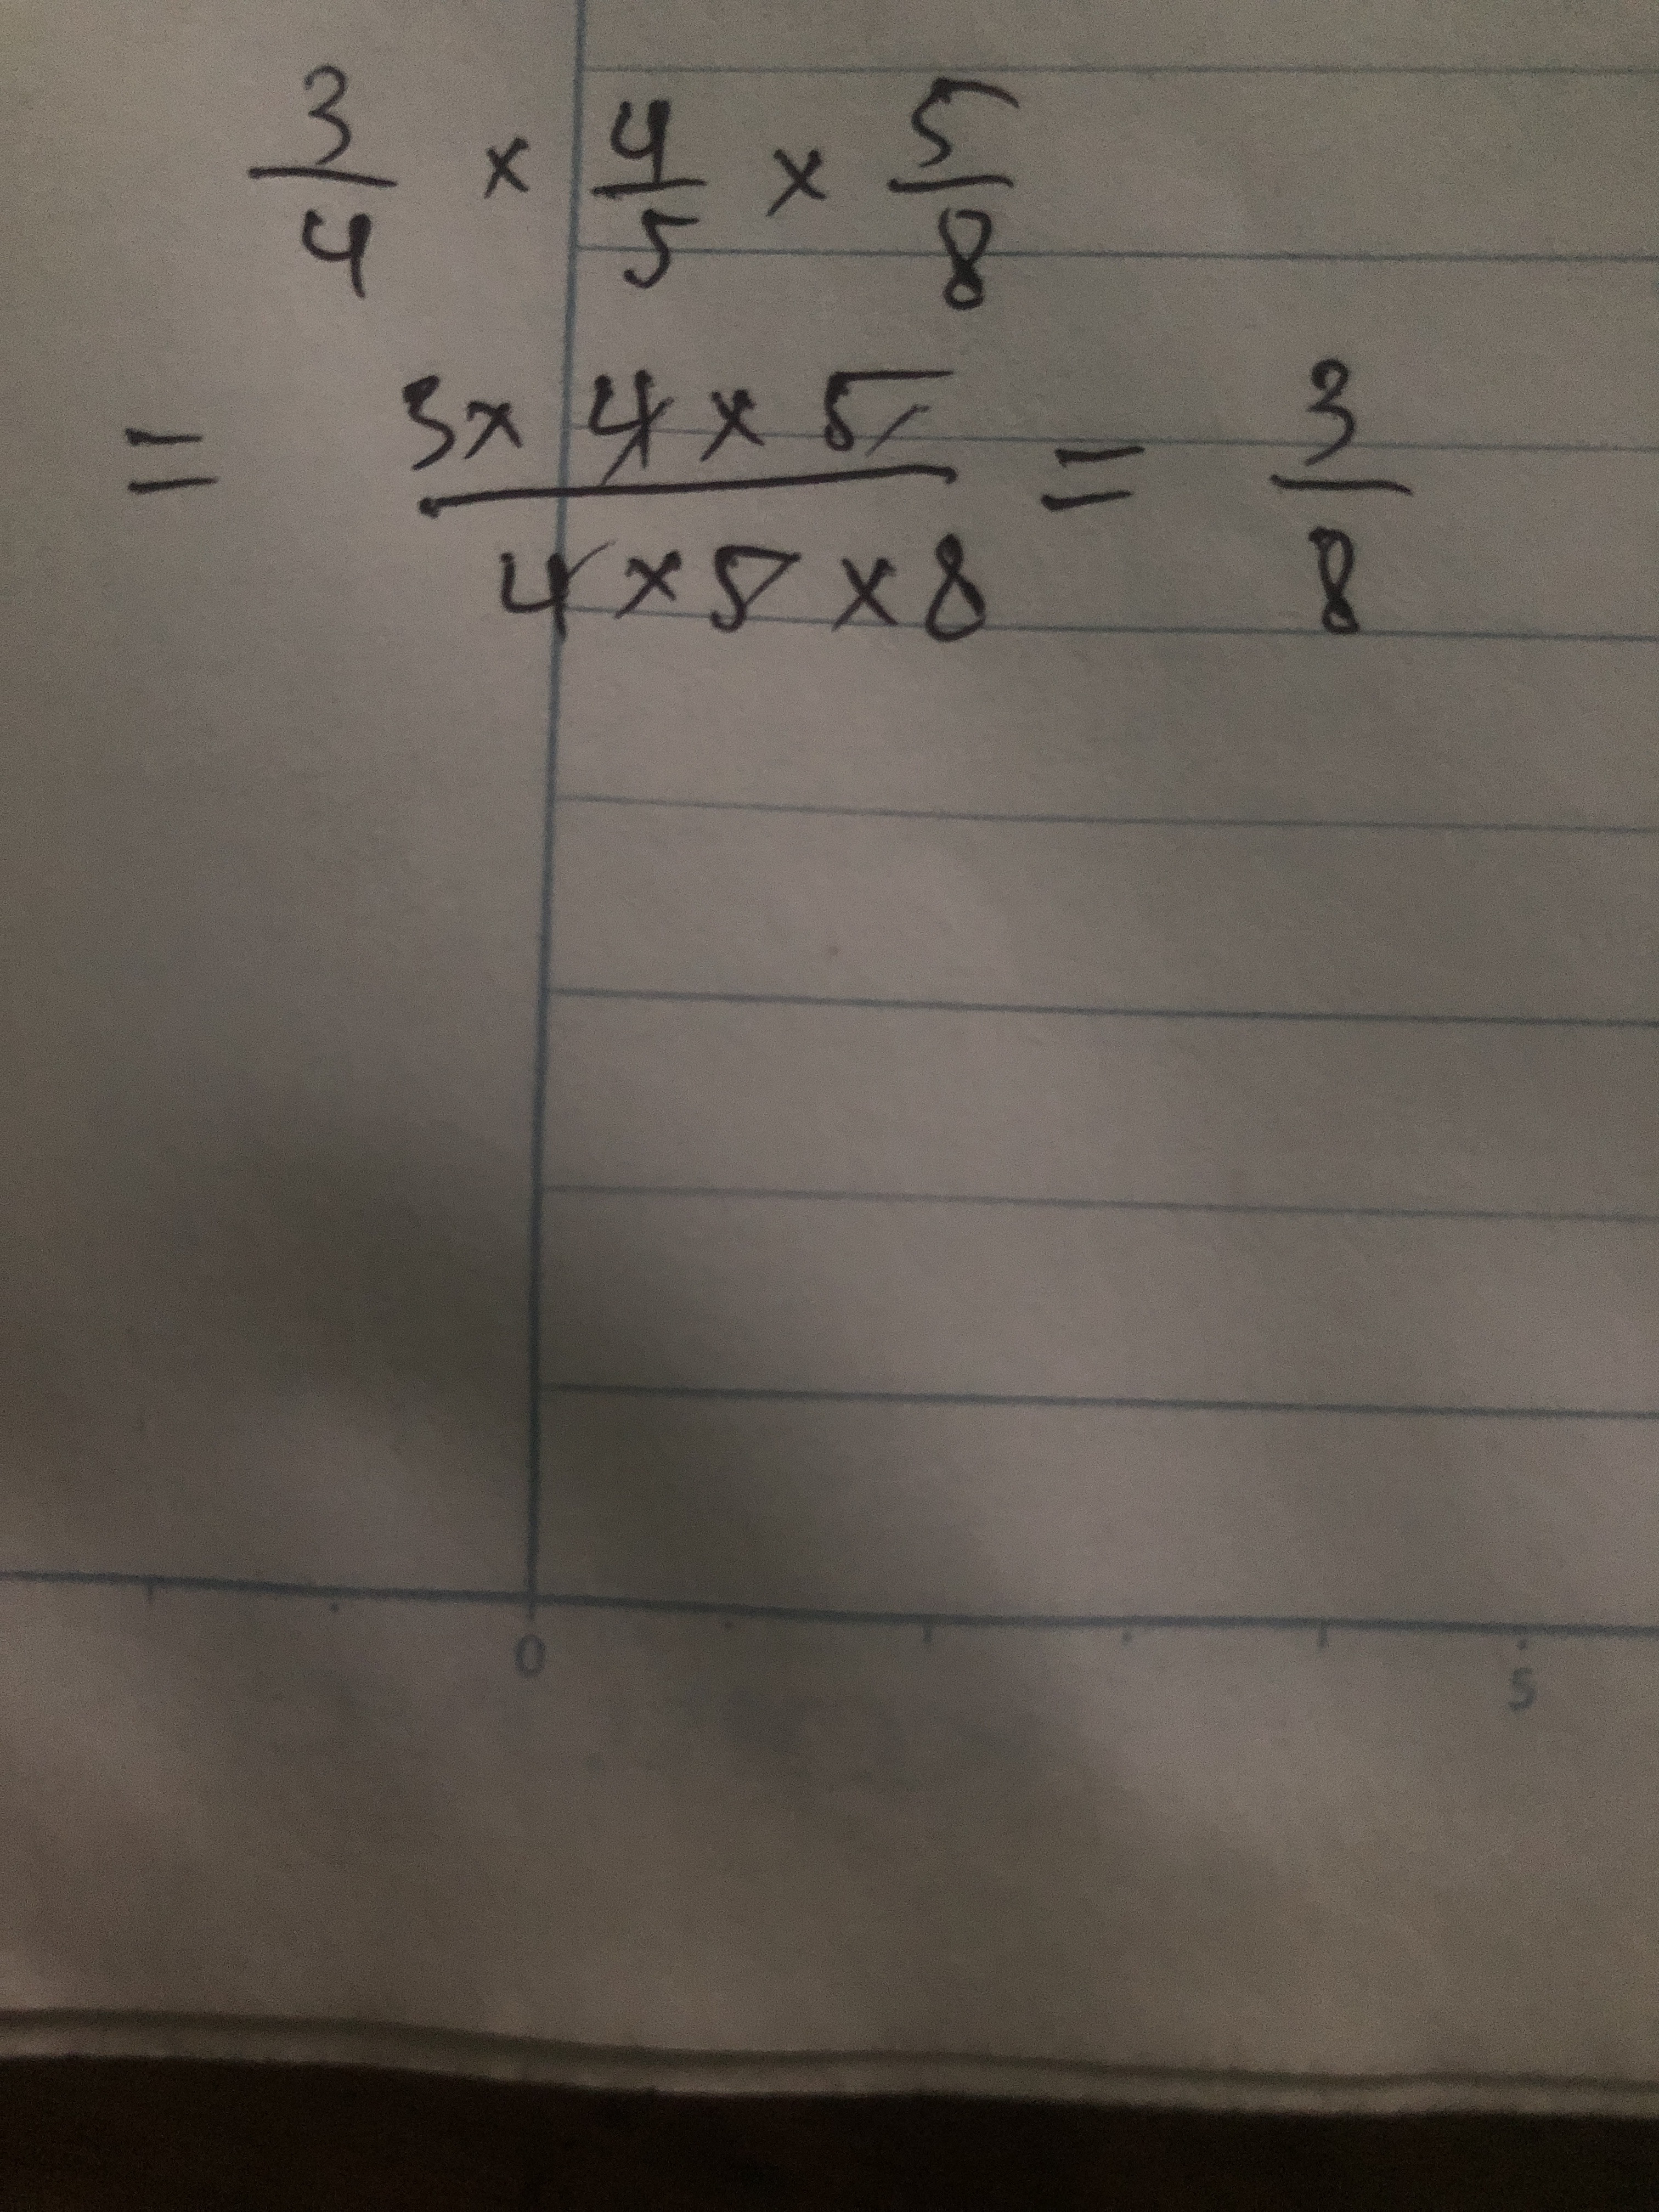 3/4 × 4/5 × 5/8
= 3 × 4 × 5 / 4 × 5 × 8 = 3/8
0 5